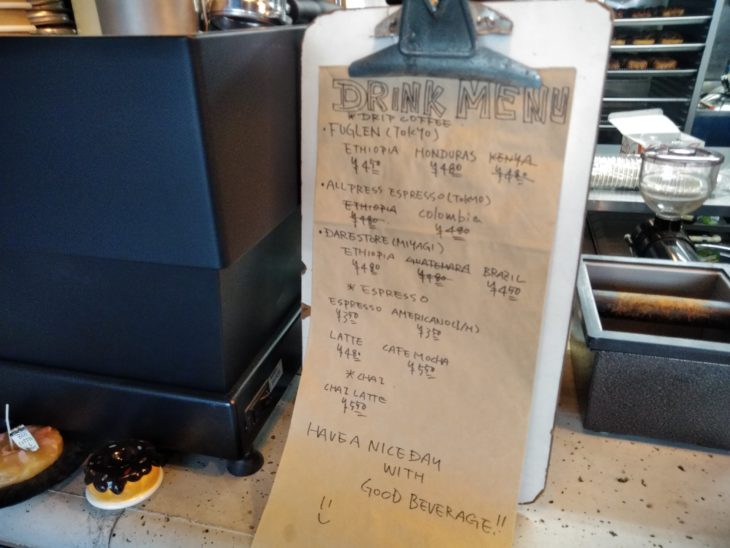 DRINK MENU
* DRIP COFFEE
• FUGLEN (TOKYO)
ETHIOPIA HONDURAS KENYA
¥450 ¥480 ¥480
• ALLPRESS ESPRESSO (TOKYO)
ETHIOPIA Colombia
¥480 ¥480
• DARESTORE (MIYAGI)
ETHIOPIA GUATEMARA BRAZIL
¥480 ¥480 ¥450
* ESPRESSO
ESPRESSO AMERICANO (I/H)
¥350 ¥350
LATTE CAFE MOCHA
¥480 ¥550
* CHAI
CHAI LATTE
¥550
HAVE A NICE DAY
WITH
GOOD BEVERAGE!!